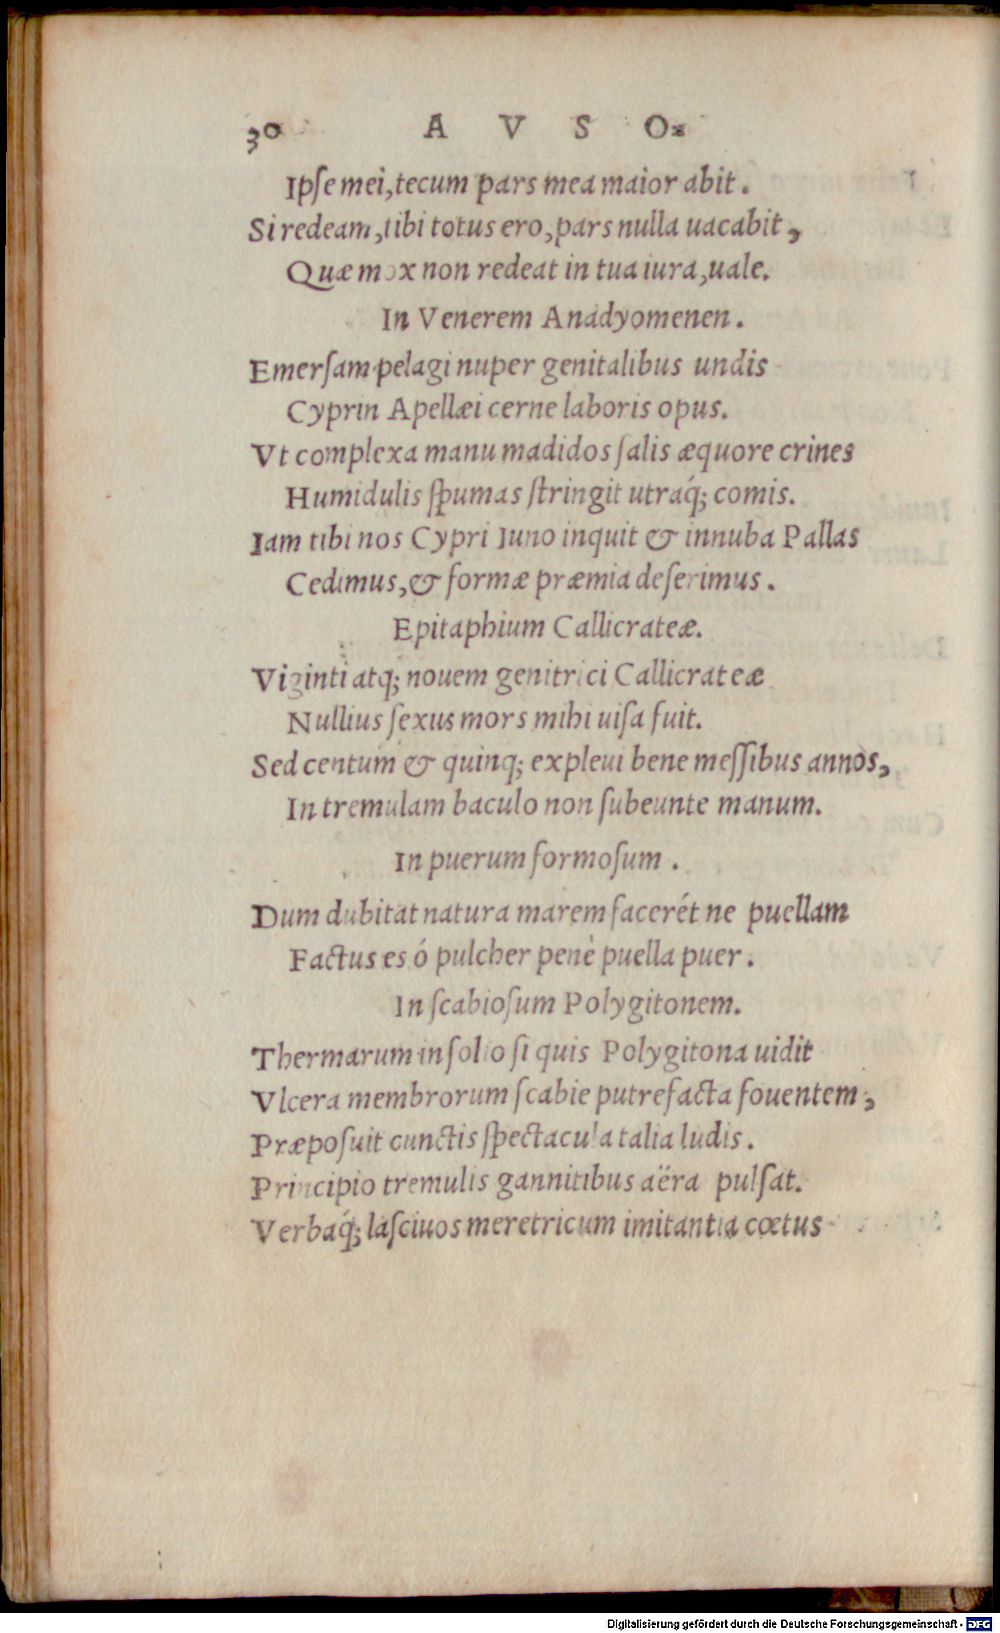 30 A V S O.
Ipſe mei, tecum pars mea maior abit.
Si redeam, tibi totus ero, pars nulla uacabit,
Quæ mox non redeat in tua iura, uale.
In Venerem Anadyomenen.
Emerſam pelagi nuper genitalibus undis
Cyprin Apellæi cerne laboris opus.
Vt complexa manu madidos ſalis æquore crines
Humidulis ſpumas ſtringit utraq́; comis.
Iam tibi nos Cypri Iuno inquit & innuba Pallas
Cedimus, & formæ præmia deſerimus.
Epitaphium Callicrateæ.
Viginti atq; nouem genitrici Callicrateæ
Nullius ſexus mors mihi uiſa fuit.
Sed centum & quinq; expleui bene meſſibus annos,
In tremulam baculo non ſubeunte manum.
In puerum formoſum.
Dum dubitat natura marem facerét ne puellam
Factus es ó pulcher penè puella puer.
In ſcabioſum Polygitonem.
Thermarum in ſolio ſi quis Polygitona uidit
Vlcera membrorum ſcabie putrefacta fouentem,
Præpoſuit cunctis ſpectacula talia ludis.
Principio tremulis gannitibus aëra pulſat.
Verbaq́; laſciuos meretricum imitantia cœtus
Digitalisierung gefördert durch die Deutsche Forschungsgemeinschaft - DFG